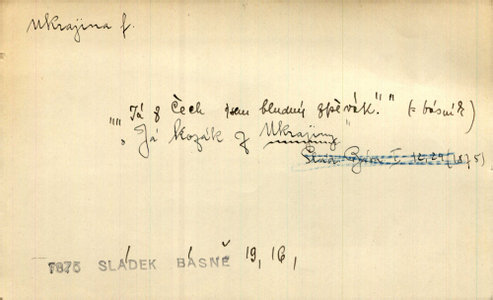 Ukrajina f.
„„Já z Čech jsem bludný zpěvák.“ “ (= básník)
„Já kozák z Ukrajiny“
I. 12, 29 (1875)
1875 SLÁDEK BÁSNĚ 19, 16,